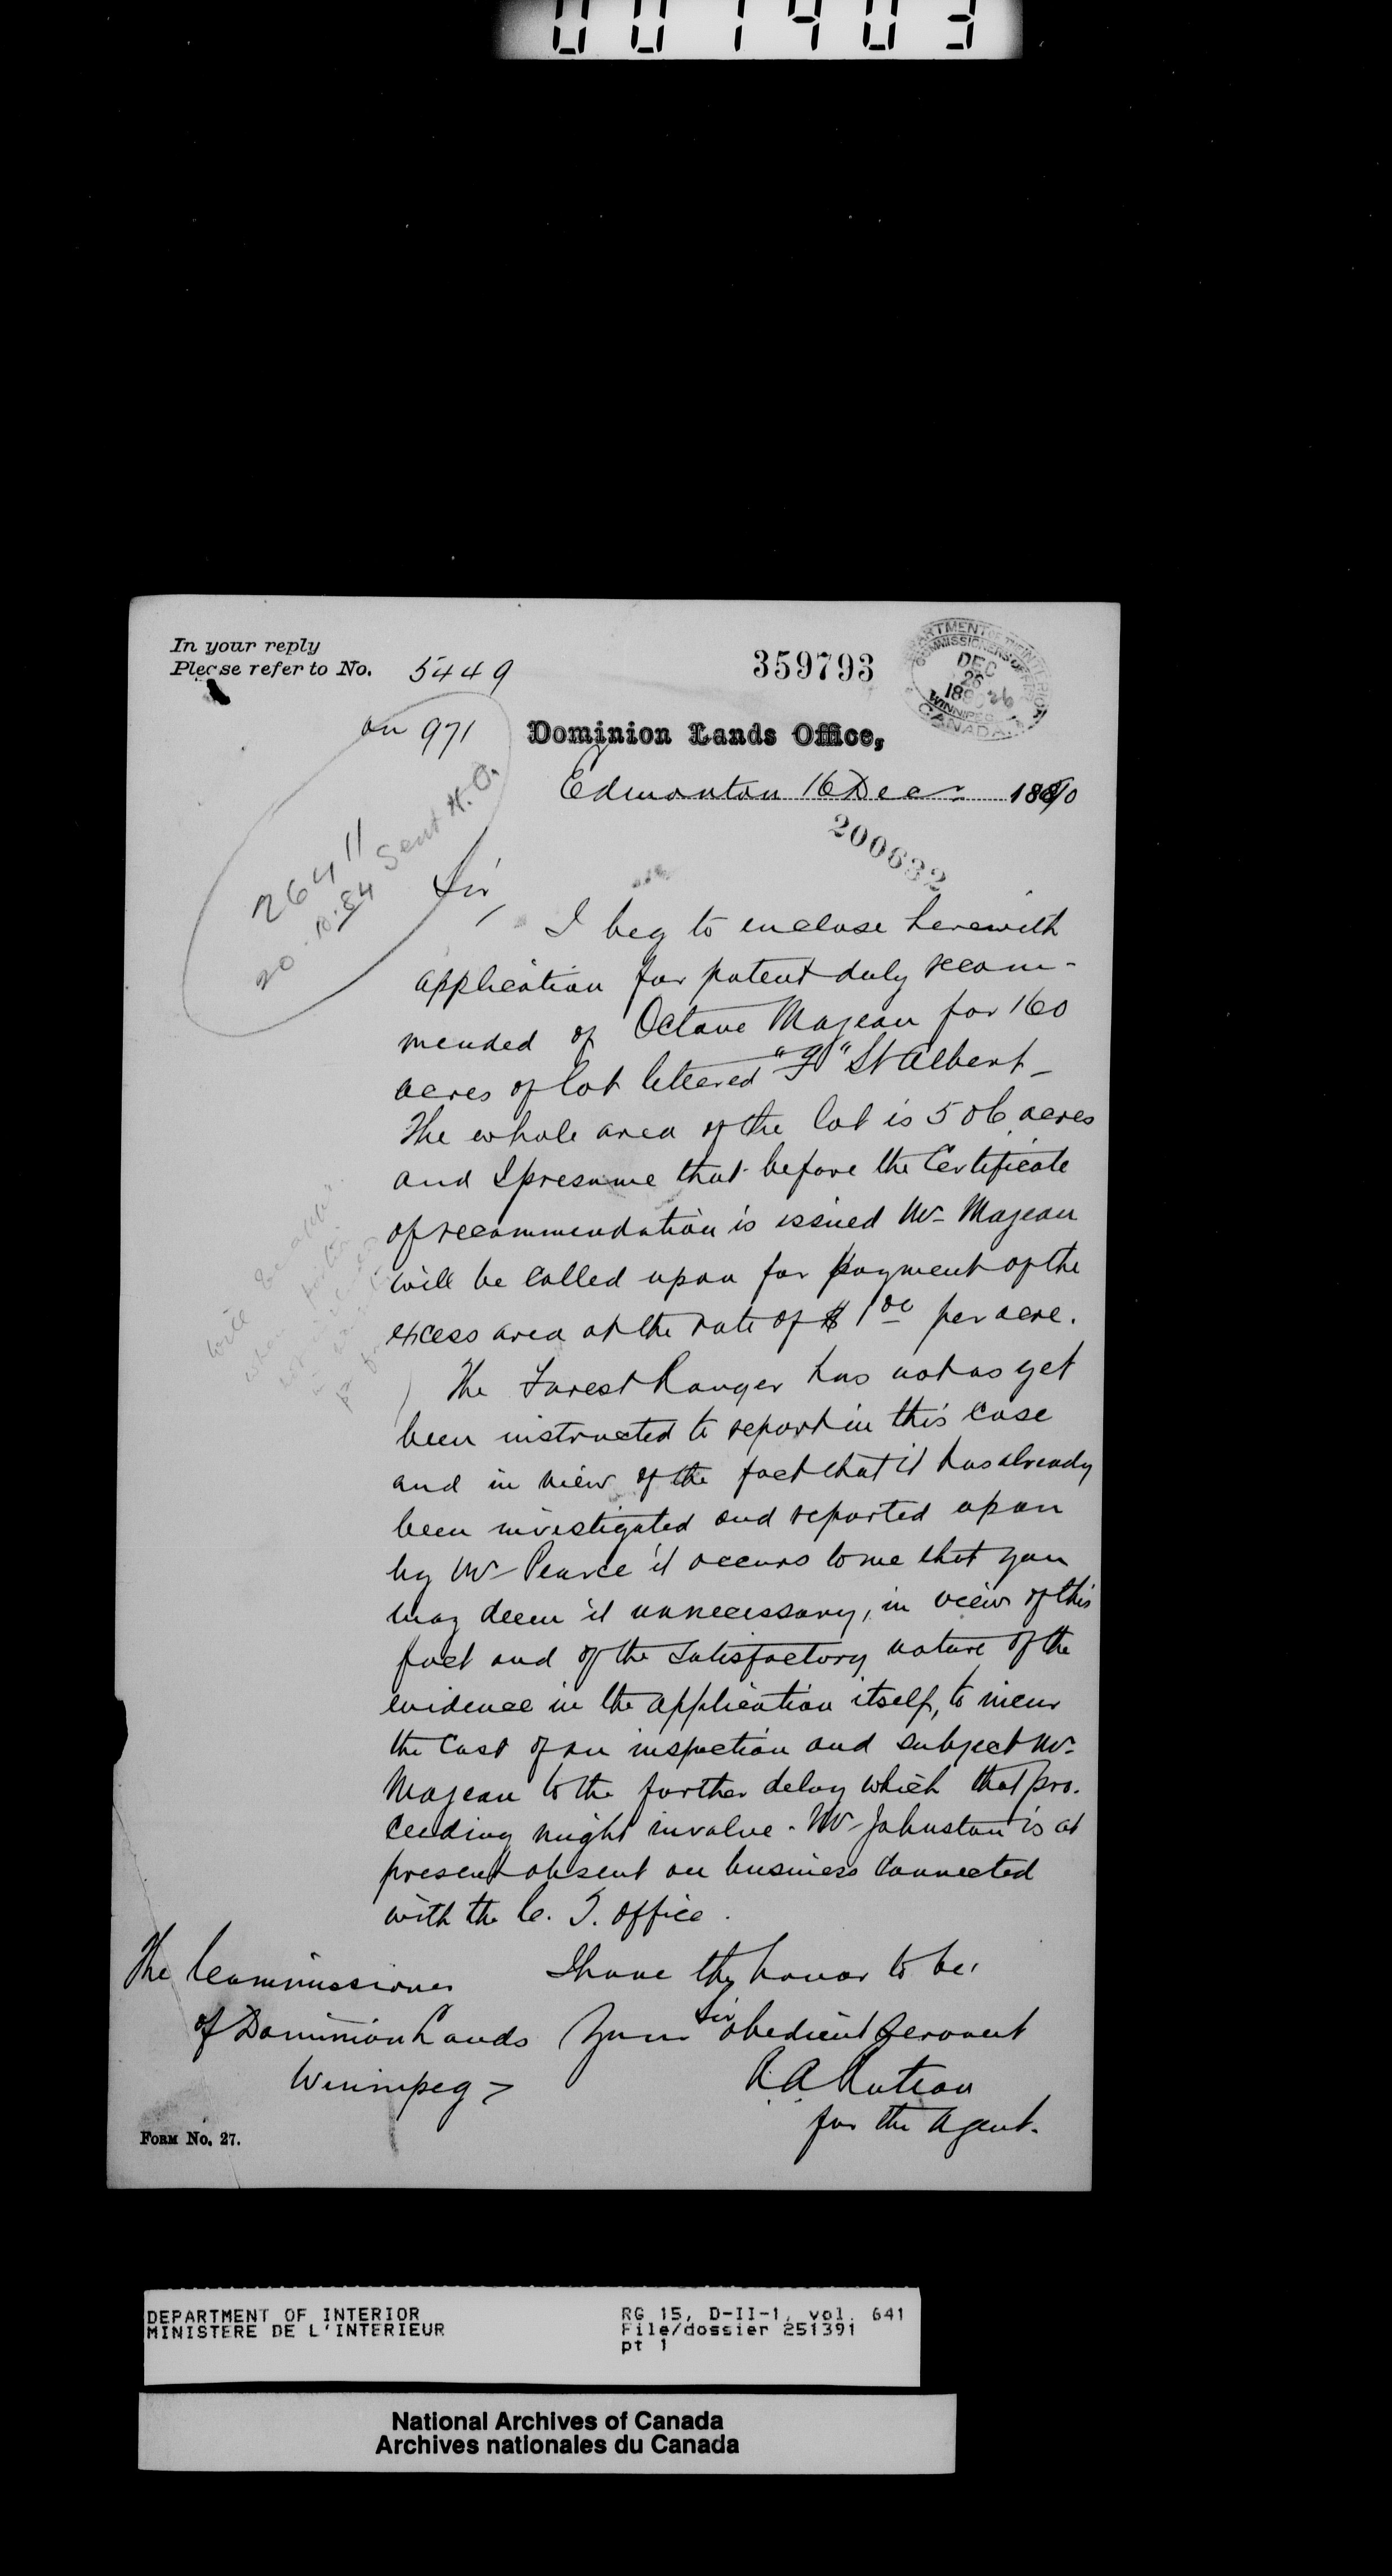 001403
In your reply
Please refer to No. 5449
on 971
359793
DEPARTMENT OF THE INTERIOR
COMMISSIONERS OFFICE
DEC
26
1890
WINNIPEG
CANADA
Dominion Lands Office,
Edmonton 16 Decr 1890
200632
26411
20.10.84 Sent H.O.
Sir,
I beg to enclose herewith
application for patent duly recom-
mended of Octave Majeau for 160
acres of lot lettered "F" St Albert –
The whole area of the lot is 506 acres
and I presume that before the Certificate
of recommendation is issued Mr Majeau
will be called upon for payment of the
excess area at the rate of $1 00 per acre.
The Forest Ranger has not as yet
been instructed to report in this case
and in view of the fact that it has already
been investigated and reported upon
by Mr Pearce it occurs to me that you
may deem it unnecessary, in view of this
fact and of the satisfactory nature of the
evidence in the application itself, to incur
the cost of an inspection and subject Mr
Majeau to the further delay which that pro-
ceeding might involve. Mr Johnston is at
present absent on business connected
with the C. T. office.
I have the honor to be,
Sir
Your obedient servant
R. A. Ruttan
for the Agent.
The Commissioner
of Dominion Lands
Winnipeg –
Form No. 27.
DEPARTMENT OF INTERIOR
MINISTERE DE L'INTERIEUR
RG 15, D-II-1, vol. 641
File/dossier 251391
pt 1
National Archives of Canada
Archives nationales du Canada